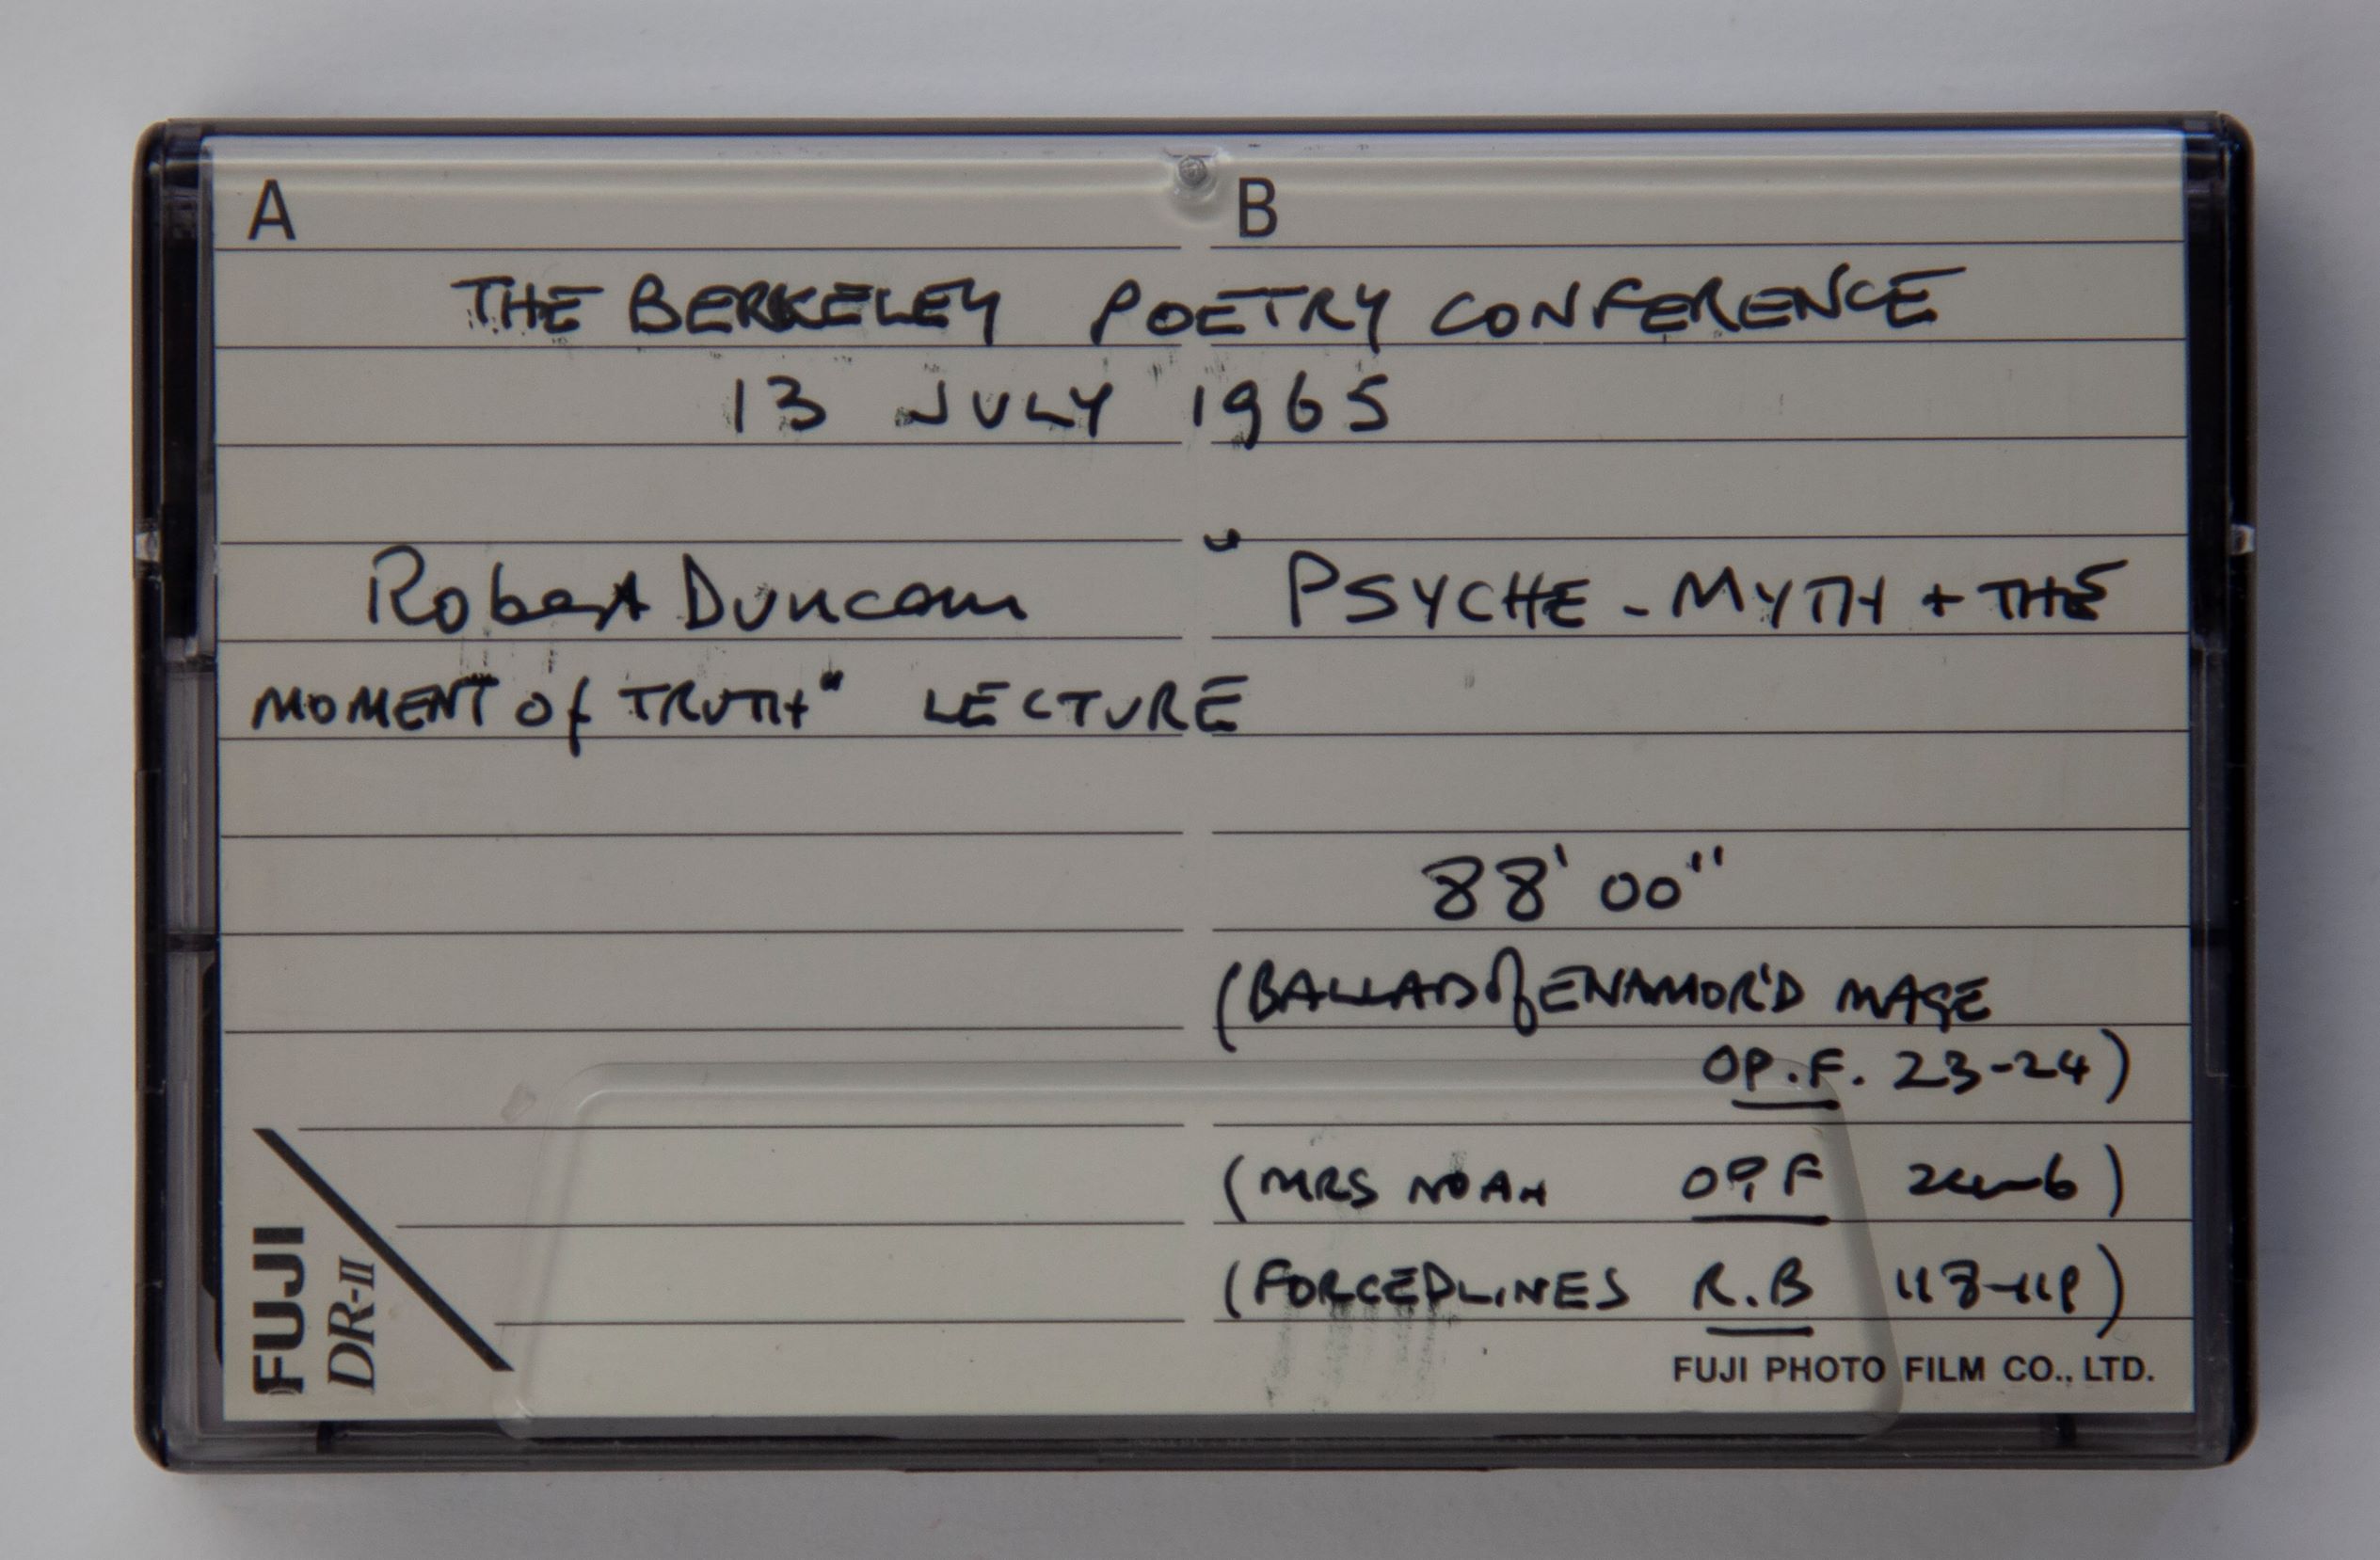 A B
THE BERKELEY POETRY CONFERENCE
13 JULY 1965
Robert Duncan " PSYCHE - MYTH + THE
MOMENT of TRUTH" LECTURE
88' 00"
(BALLAD of ENAMOR'D MAGE
OP.F. 23-24)
(MRS NOAH OP.F )
(FORCEDLINES R.B 118-119)
FUJI
DR-II
FUJI PHOTO FILM CO., LTD.